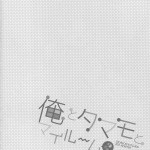 俺とタマモと
マイルーム